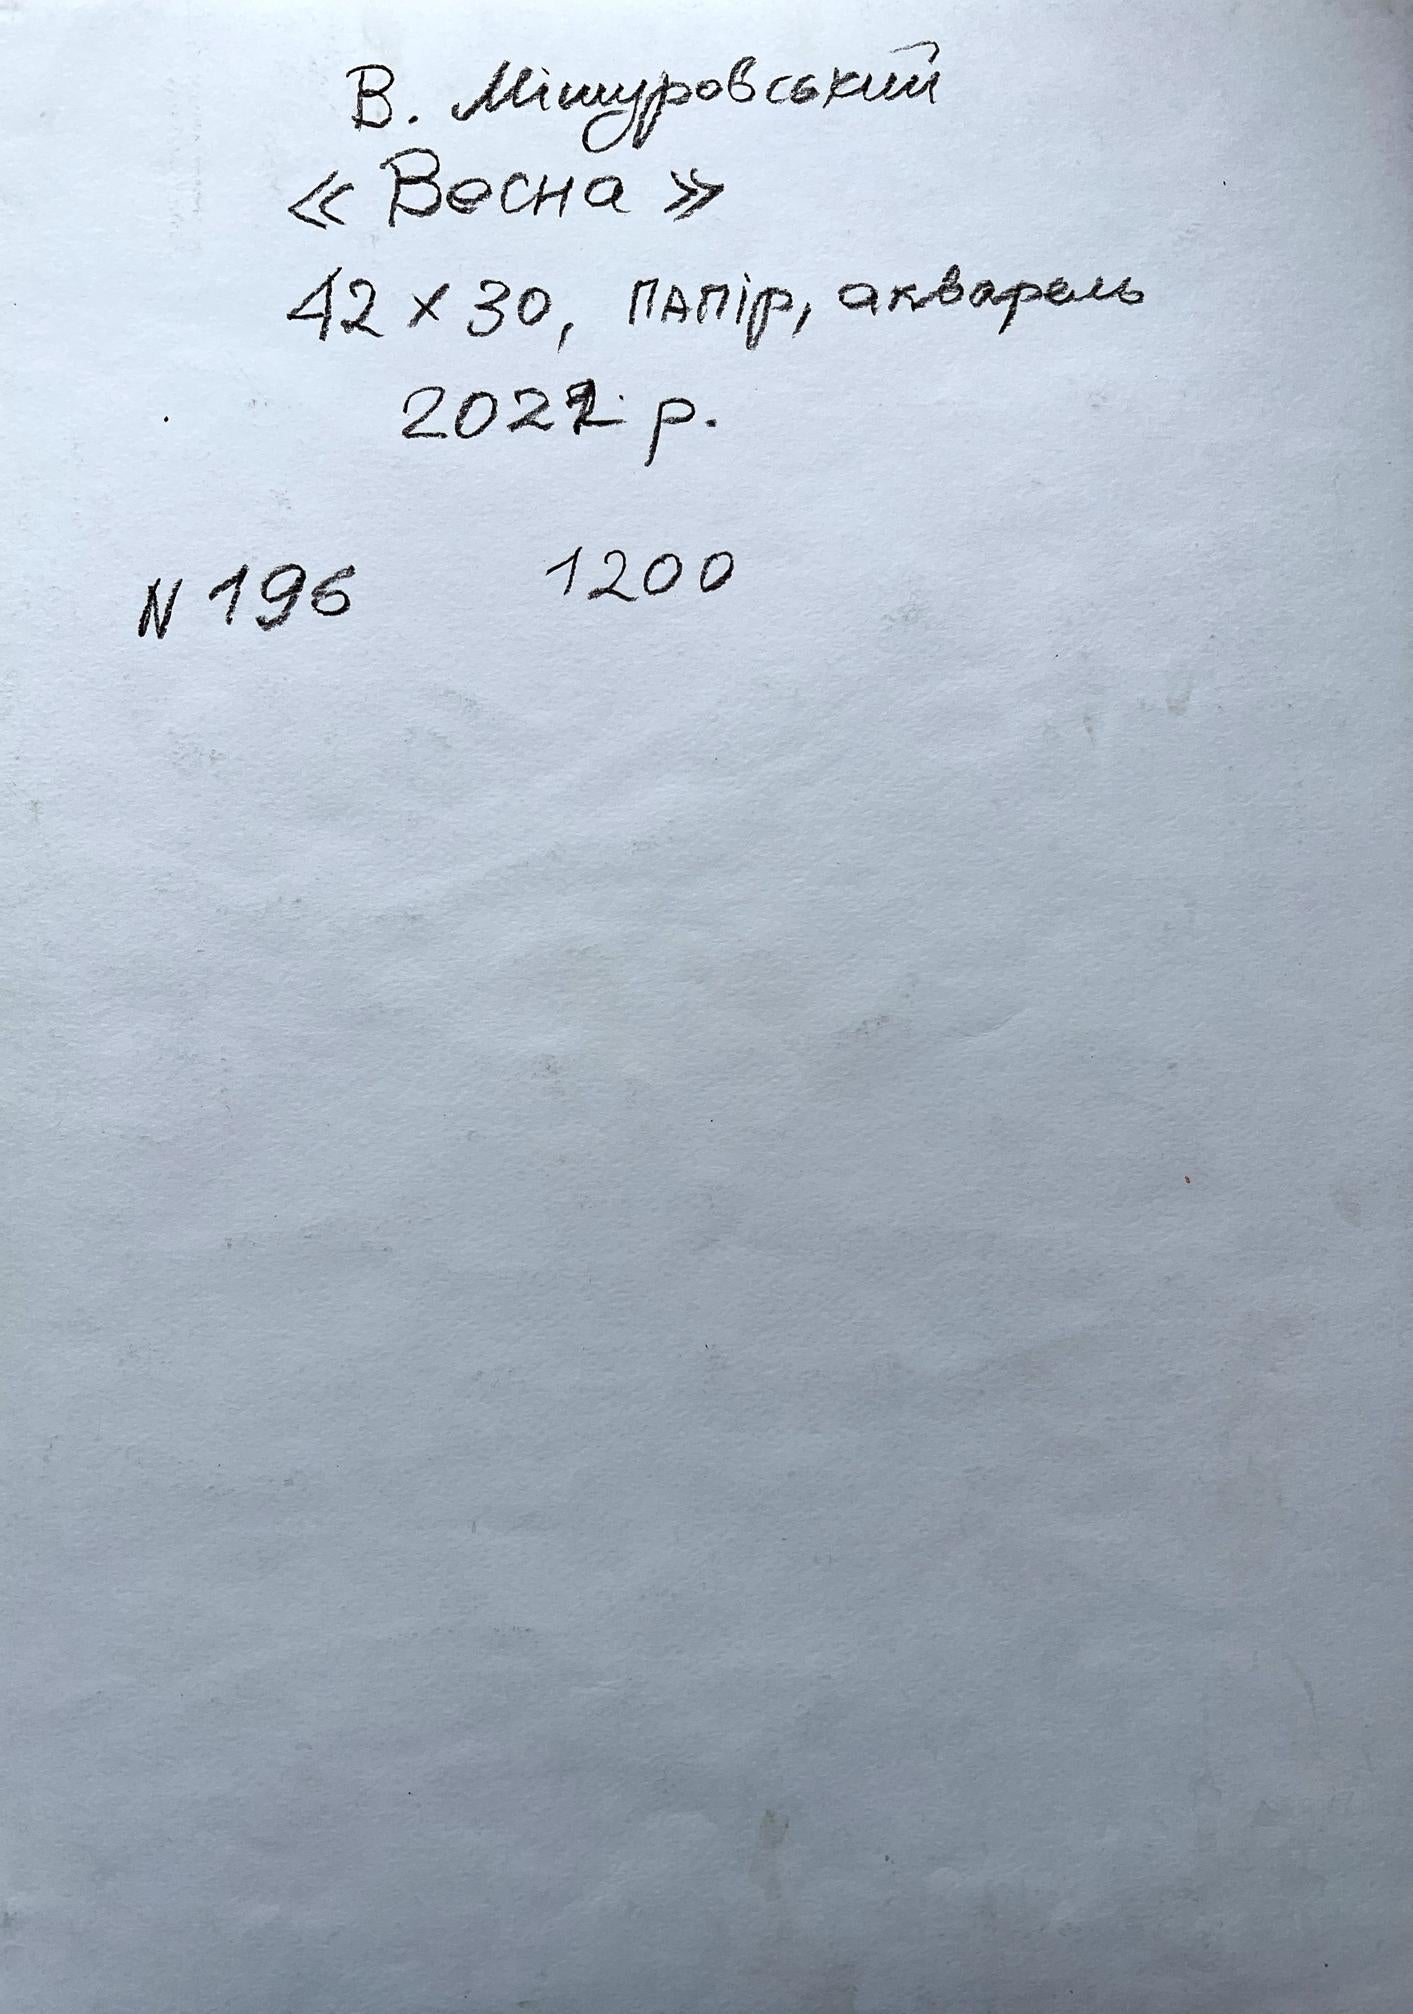 В. Мішуровський
« Весна »
42 x 30, папір, акварель
р.
N 196 1200